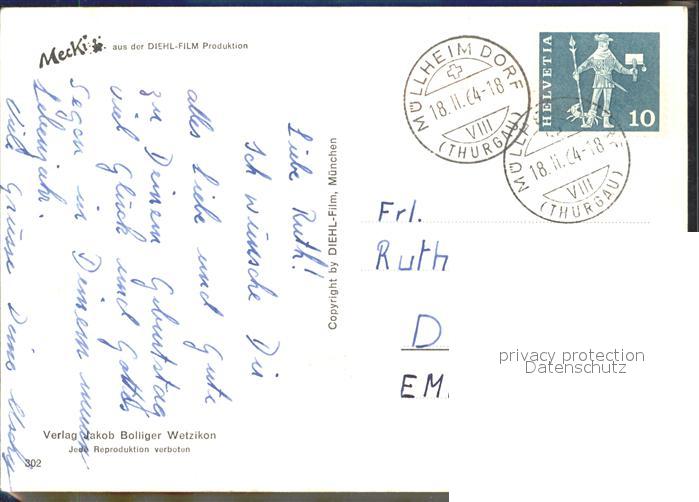 Mecki aus der DIEHL-FILM Produktion
Liebe Ruth!
Ich wünsche Dir
alles Liebe und Gute
zu Deinem Geburtstag
viel Glück und Gottes
Segen in Deinem neuen
Lebensjahr.
Viele Grüsse Deine
Copyright by DIEHL-Film, München
MÜLLHEIM DORF
18.II.64-18
VIII
(THURGAU)
HELVETIA
10
MÜLLHEIM
18.II.64-18
VIII
(THURGAU)
Frl.
Ruth
D
EM.
privacy protection
Datenschutz
Verlag Jakob Bolliger Wetzikon
Jede Reproduktion verboten
302